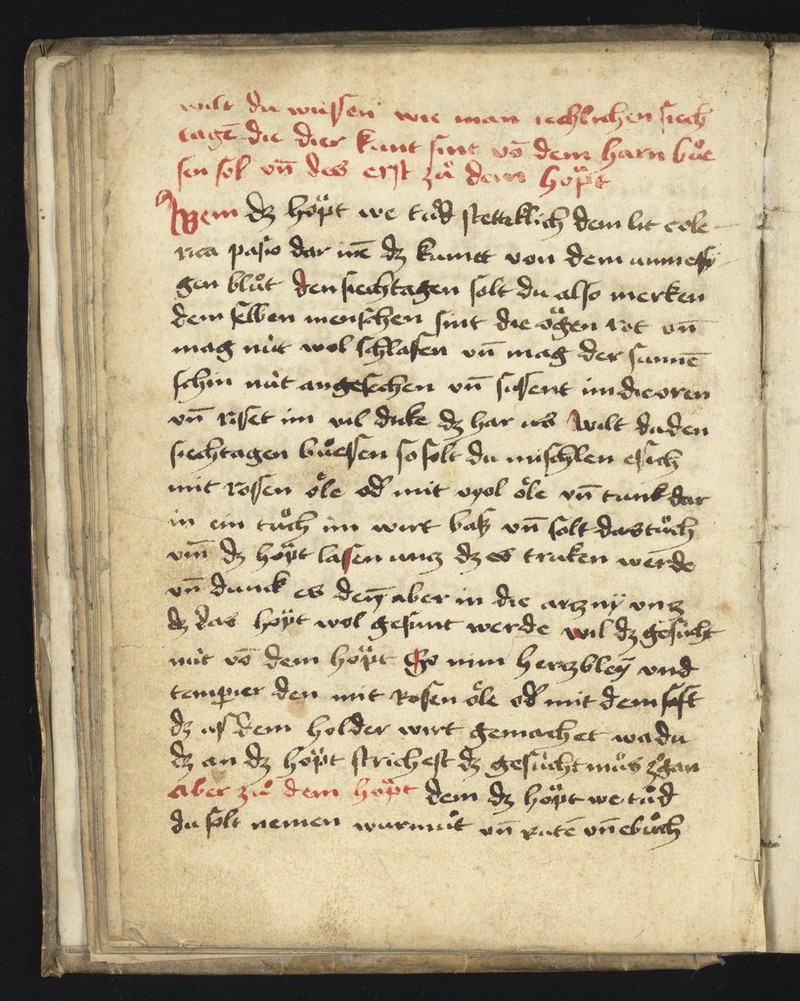 wilt du wüssen wie man ieklichen siech
tagē die dier kunt sint vō dem harn bůe
sen sol vn̄ des erst zů dem höpt
Wem dz höpt we tůd stetteklich dem lit cole
rica pasio dar inē dz kumtt von dem unmessy
gen blůt den siechtagen solt du also merken
dem selben menschen sint die ögen rot vn̄
mag nüt wol schlafen vn̄ mag der sunnē
schin nüt angesechen vn̄ sussent im die oren
vn̄ riset im vil dike dz har us wilt du den
siechtagen bůessen so solt du mischlen essich
mit rossen öle od mit vyol öle vn̄ tunk dar
in ein tůch im wirt bas vn̄ solt das tůch
vm̄ dz höpt lasen unz dz es truken werde
vn̄ dunck es den aber in die arzny unz
dz das höpt wol gesunt werde wil dz gesücht
nüt vō dem höpt So nim herzbley vnd
temperier den mit Rosen öle od mit dem saft
dz us dem holder wirt gemachet wa du
dz an dz höpt strichest dz gesücht můs zergan
Aber zů dem höpt dem dz höpt we tůd
du solt nemen wurmůt vn̄ rutē vn̄ ebůch